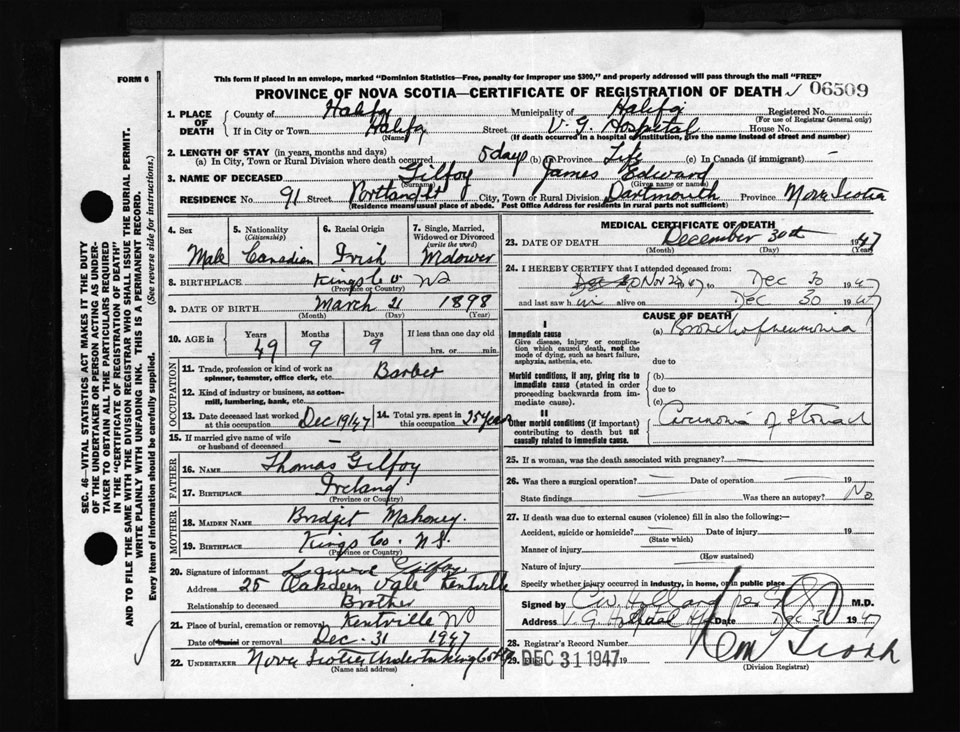 FORM 6
This form if placed in an envelope, marked "Dominion Statistics—Free, penalty for improper use $300," and properly addressed will pass through the mail "FREE"
PROVINCE OF NOVA SCOTIA—CERTIFICATE OF REGISTRATION OF DEATH 06509
1. PLACE OF DEATH County of Halifax Municipality of Halifax Registered No.
(For use of Registrar General only)
If in City or Town Halifax Street V. G. Hospital House No.
(Name) (If death occurred in a hospital or institution, give the name instead of street and number)
2. LENGTH OF STAY (in years, months and days)
(a) In City, Town or Rural Division where death occurred 5 days (b) In Province Life (c) In Canada (if immigrant) —
3. NAME OF DECEASED Gilfoy James Edward
(Surname) (Given name or names)
RESIDENCE No. 91 Street City, Town or Rural Division Dartmouth Province Nova Scotia
(Residence means usual place of abode. Post Office Address for residents in rural parts not sufficient)
4. Sex 5. Nationality (Citizenship) 6. Racial Origin 7. Single, Married, Widowed or Divorced (write the word)
Male Canadian Irish Widower
8. BIRTHPLACE Kings Co NS
(Province or Country)
9. DATE OF BIRTH March 21 1898
(Month) (Day) (Year)
10. AGE in Years Months Days If less than one day old
49 9 9 hrs. or min.
OCCUPATION
11. Trade, profession or kind of work as spinner, teamster, office clerk, etc. Barber
12. Kind of industry or business, as cotton-mill, lumbering, bank, etc.
13. Date deceased last worked at this occupation Dec 1947 14. Total yrs. spent in this occupation 25 years
15. If married give name of wife or husband of deceased —
FATHER
16. NAME Thomas Gilfoy
17. BIRTHPLACE Ireland
(Province or Country)
MOTHER
18. MAIDEN NAME Bridget Mahoney
19. BIRTHPLACE Kings Co. N.S.
(Province or Country)
20. Signature of informant Gilfoy
Address 25 Oakdeen Vale Kentville
Relationship to deceased Brother
21. Place of burial, cremation or removal Kentville NS
Date of burial or removal Dec. 31 1947
22. UNDERTAKER Nova Scotia Undertaking Co
(Name and address)
MEDICAL CERTIFICATE OF DEATH
23. DATE OF DEATH December 30th 1947
(Month) (Day)
24. I HEREBY CERTIFY that I attended deceased from:
Nov 1947 to Dec 30 1947
and last saw him alive on Dec 30 1947
CAUSE OF DEATH
I
Immediate cause (a) Bronchopneumonia
Give disease, injury or complication which caused death, not the mode of dying, such as heart failure, asphyxia, asthenia, etc.
due to
Morbid conditions, if any, giving rise to immediate cause (stated in order proceeding backwards from immediate cause).
(b)
due to
(c)
II
Other morbid conditions (if important) contributing to death but not causally related to immediate cause.
Carcinoma of Stomach
25. If a woman, was the death associated with pregnancy? —
26. Was there a surgical operation? — Date of operation — 19
State findings — Was there an autopsy? No
27. If death was due to external causes (violence) fill in also the following:—
Accident, suicide or homicide? — Date of injury — 19
(State which)
Manner of injury —
(How sustained)
Nature of injury —
Specify whether injury occurred in industry, in home, or in public place
Signed by M.D.
Address V. G. Hospital Date Dec 3 1947
28. Registrar's Record Number
29. Filed DEC 31 1947 19
(Division Registrar)
SEC. 46—VITAL STATISTICS ACT MAKES IT THE DUTY
OF THE UNDERTAKER OR PERSON ACTING AS UNDER-
TAKER TO OBTAIN ALL THE PARTICULARS REQUIRED
IN THE "CERTIFICATE OF REGISTRATION OF DEATH"
AND TO FILE THE SAME WITH THE DIVISION REGISTRAR WHO SHALL ISSUE THE BURIAL PERMIT.
WRITE PLAINLY WITH UNFADING INK. THIS IS A PERMANENT RECORD.
Every item of information should be carefully supplied. (See reverse side for instructions.)